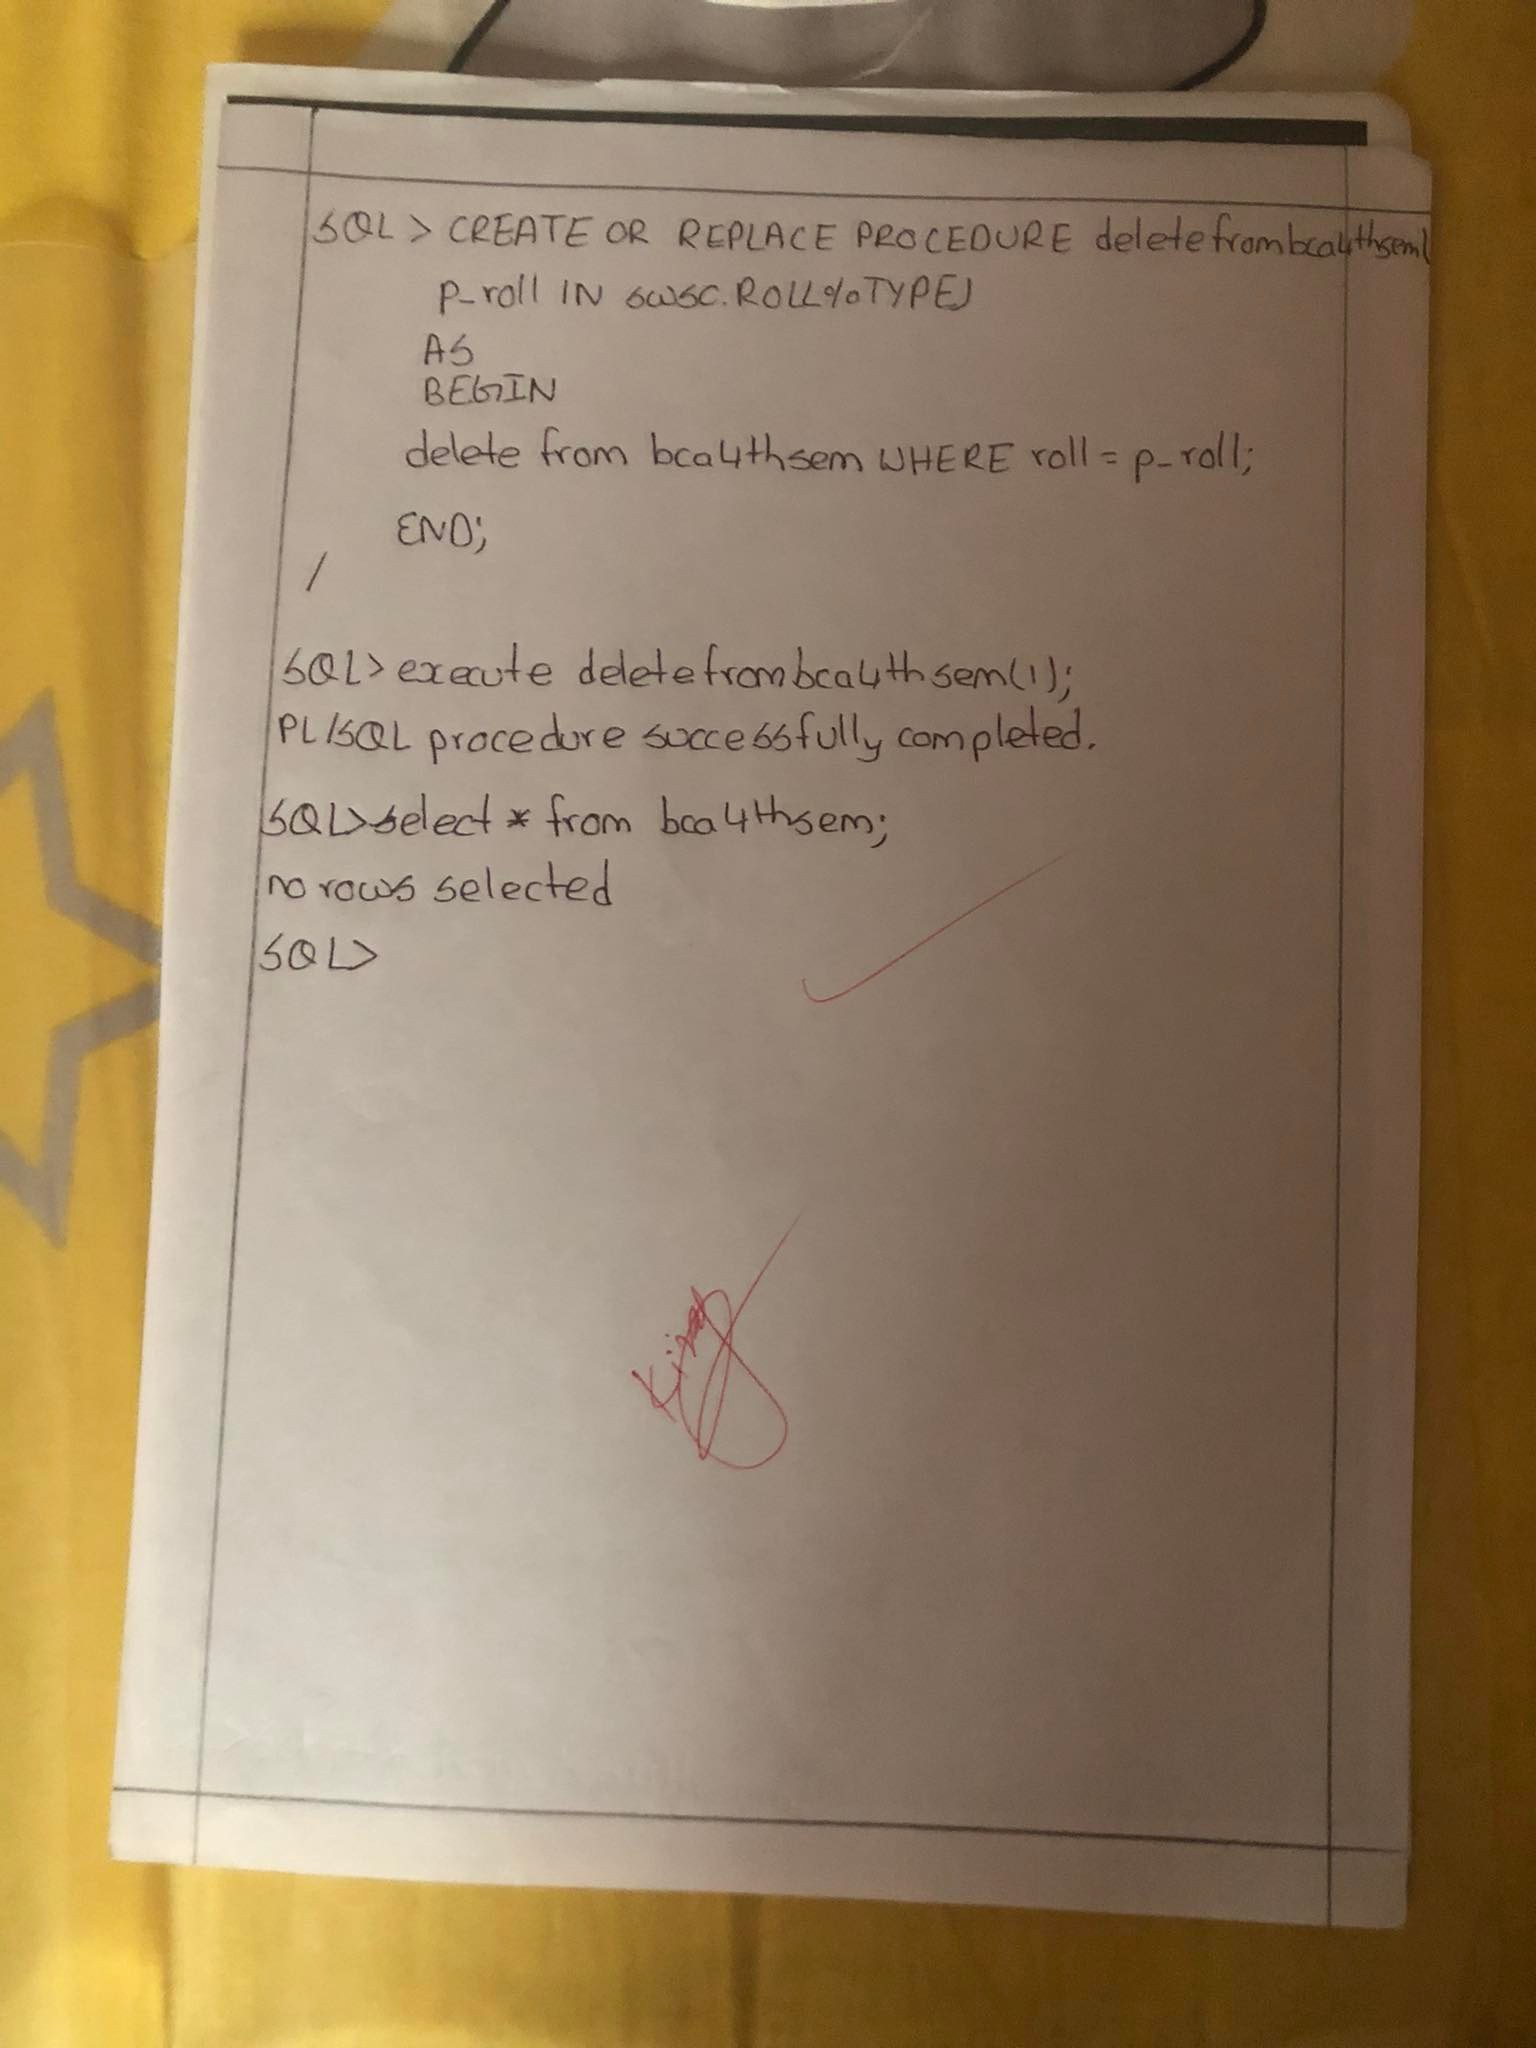 SQL> CREATE OR REPLACE PROCEDURE deletefrombca4thsem(
p_roll IN swsc.ROLL%TYPE)
AS
BEGIN
delete from bca4thsem WHERE roll = p_roll;
END;
/
SQL> execute deletefrombca4thsem(1);
PL/SQL procedure successfully completed.
SQL> select * from bca4thsem;
no rows selected
SQL>